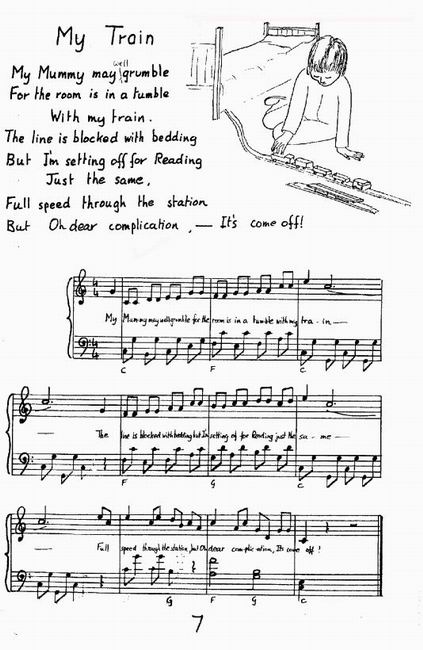 My Train
My Mummy may well grumble
For the room is in a tumble
With my train.
The line is blocked with bedding
But I'm setting off for Reading
Just the same,
Full speed through the station
But Oh dear complication, — It's come off!
My Mummy may well grumble for the room is in a tumble with my tra - in —
C F C
The line is blocked with bedding but I'm setting of for Reading just the sa - me —
F G C
Full speed through the station, but Oh dear complication, It's come off!
G F G C
7